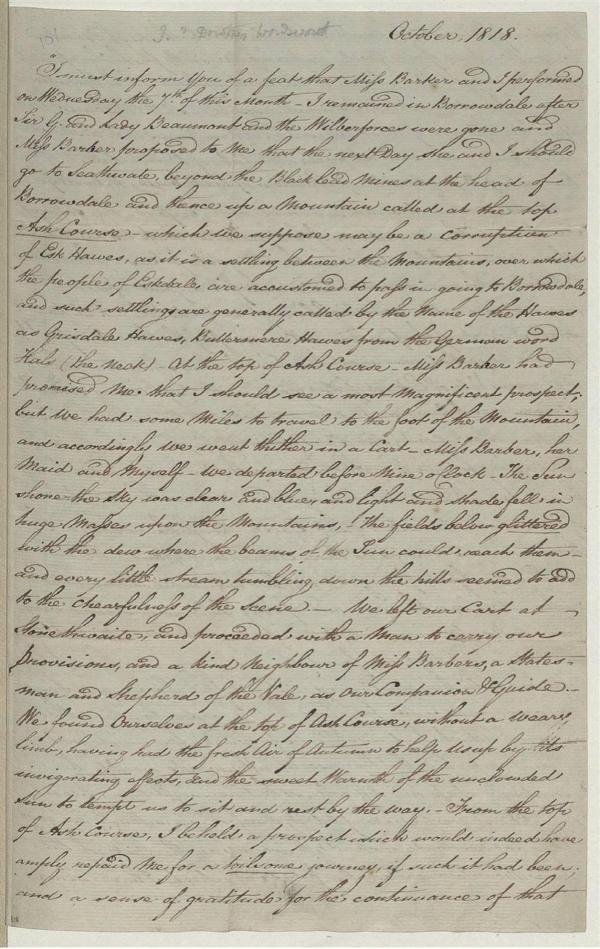 October, 1818.
"I must inform You of a feat that Miss Barker and I performed
on Wednesday the 7th of this Month – I remained in Borrowdale after
Sir G. and Lady Beaumont and the Wilberforces were gone and
Miss Barker proposed to Me that the next Day she and I should
go to Seathwaite, beyond the Black lead Mines at the head of
Borrowdale and thence up a Mountain called at the top
Ash Course – which we suppose may be a corruption
of Esk Hawes, as it is a settling between the Mountains, over which
the people of Eskdale are accustomed to pass in going to Borrowdale,
and such settlings are generally called by the Name of the Hawes
as Grisdale Hawes, Buttermere Hawes from the German word
Hals (the Neck) – At the top of Ash Course – Miss Barker had
promised Me that I should see a most Magnificent prospect;
but We had some Miles to travel to the foot of the Mountain,
and accordingly we went thither in a Cart – Miss Barber, her
Maid and Myself – We departed before Nine o'Clock – The Sun
shone – the sky was clear and blue, and light and shade fell in
huge Masses upon the Mountains, – The fields below glittered
with the dew where the beams of the Sun could reach them –
and every little stream tumbling down the hills seemed to add
to the chearfulness of the scene. – We left our Cart at
Stonethwaite, and proceeded with a Man to carry our
Provisions, and a kind Neighbour of Miss Barbers, a States-
man and Shepherd of the Vale, as our Companion & Guide. –
We found Ourselves at the top of Ash Course, without a weary
limb, having had the fresh Air of Autumn to help us up by its
invigorating effects, and the sweet Warmth of the unclouded
sun to tempt us to sit and rest by the way. – From the top
of Ash Course, I beheld a prospect which would indeed have
amply repaid Me for a toilsome journey, if such it had been;
and a sense of gratitude for the continuance of that